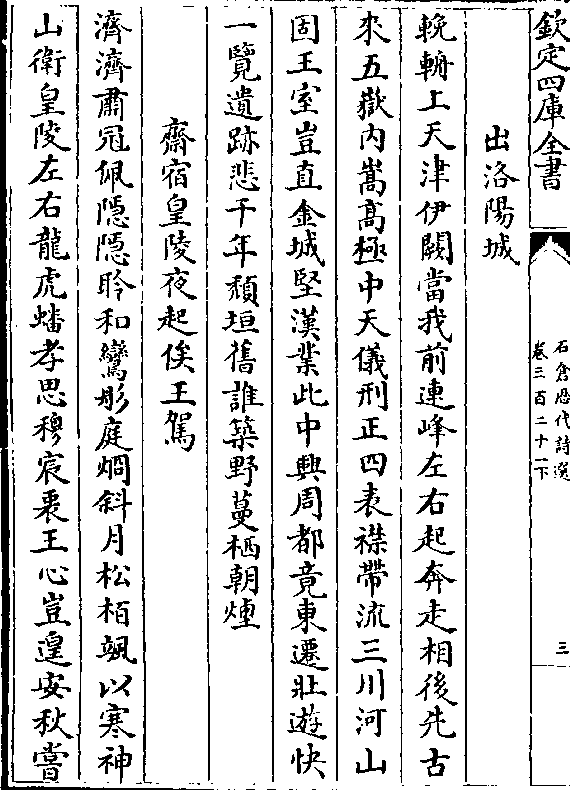 欽定四庫全書
石倉歴代詩選
卷三百二十一下
三
出洛陽城
輓輈上天津伊闕當我前連峰左右起奔走相後先古
來五嶽内嵩高極中天儀刑正四表襟帶流三川河山
固王室豈直金城堅漢業此中興周都竟東遷壯遊快
一覽遺跡悲千年頽垣舊誰築野蔓栖朝煙
齋宿皇陵夜起俟王駕
濟濟肅冠佩隱隱聆和鸞彤庭烱斜月松栢颯以寒神
山衛皇陵左右龍虎蟠孝思穆宸衷王心豈遑安秋嘗